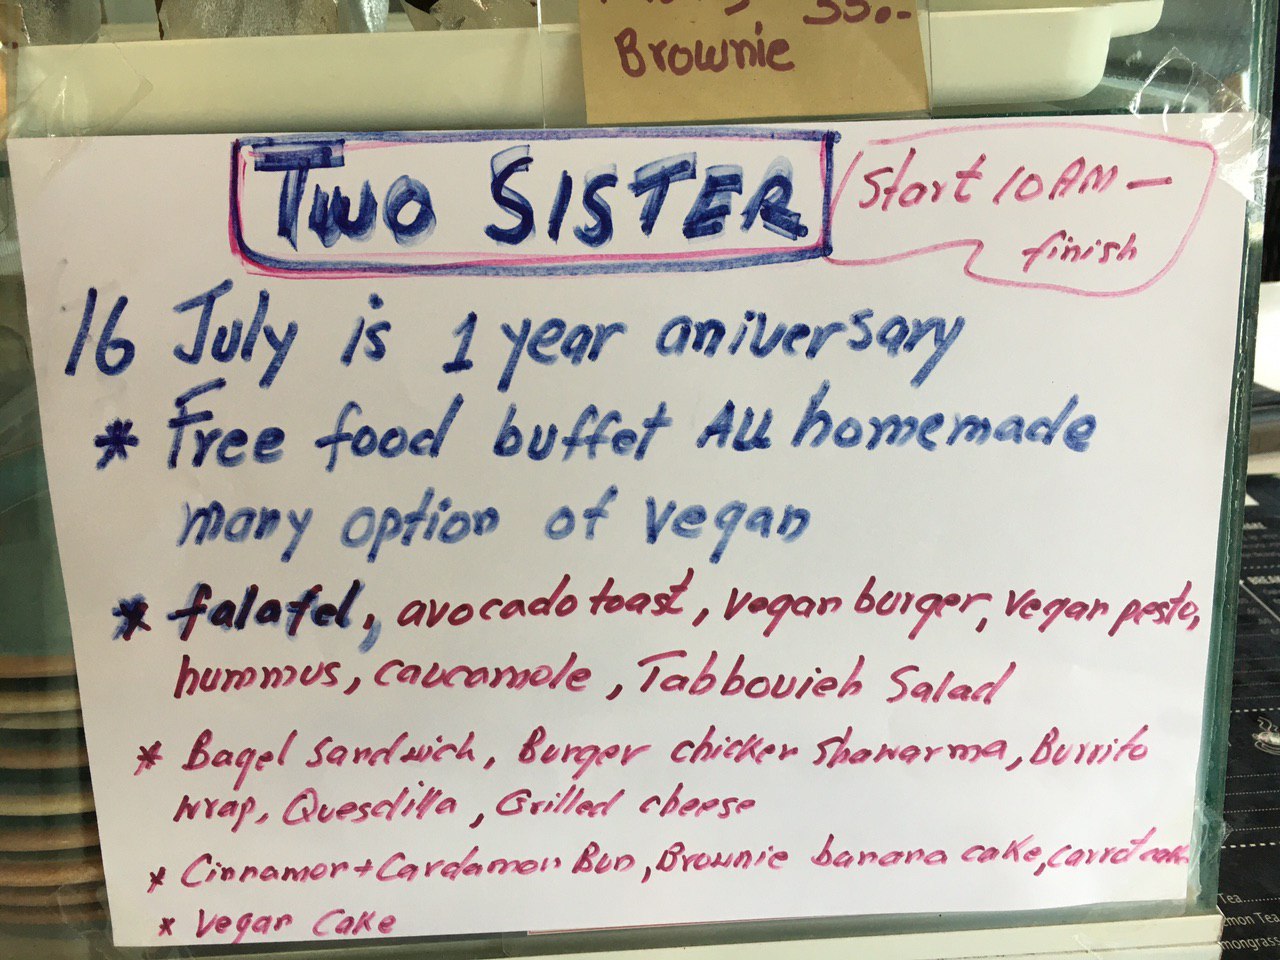 35.-
Brownie
TWO SISTER
Start 10 AM -
finish
16 July is 1 year aniversary
* Free food buffet All homemade
many option of vegan
* falafel, avocado toast, vegan burger, vegan pesto,
hummus, caucamole, Tabbouieh Salad
* Bagel sandwich, Burger chicken shawarma, Burrito
wrap, Quesdilla, Grilled cheese
* Cinnamon + Cardamon Bun, Brownie banana cake, carrot cake
* Vegan Cake
Tea